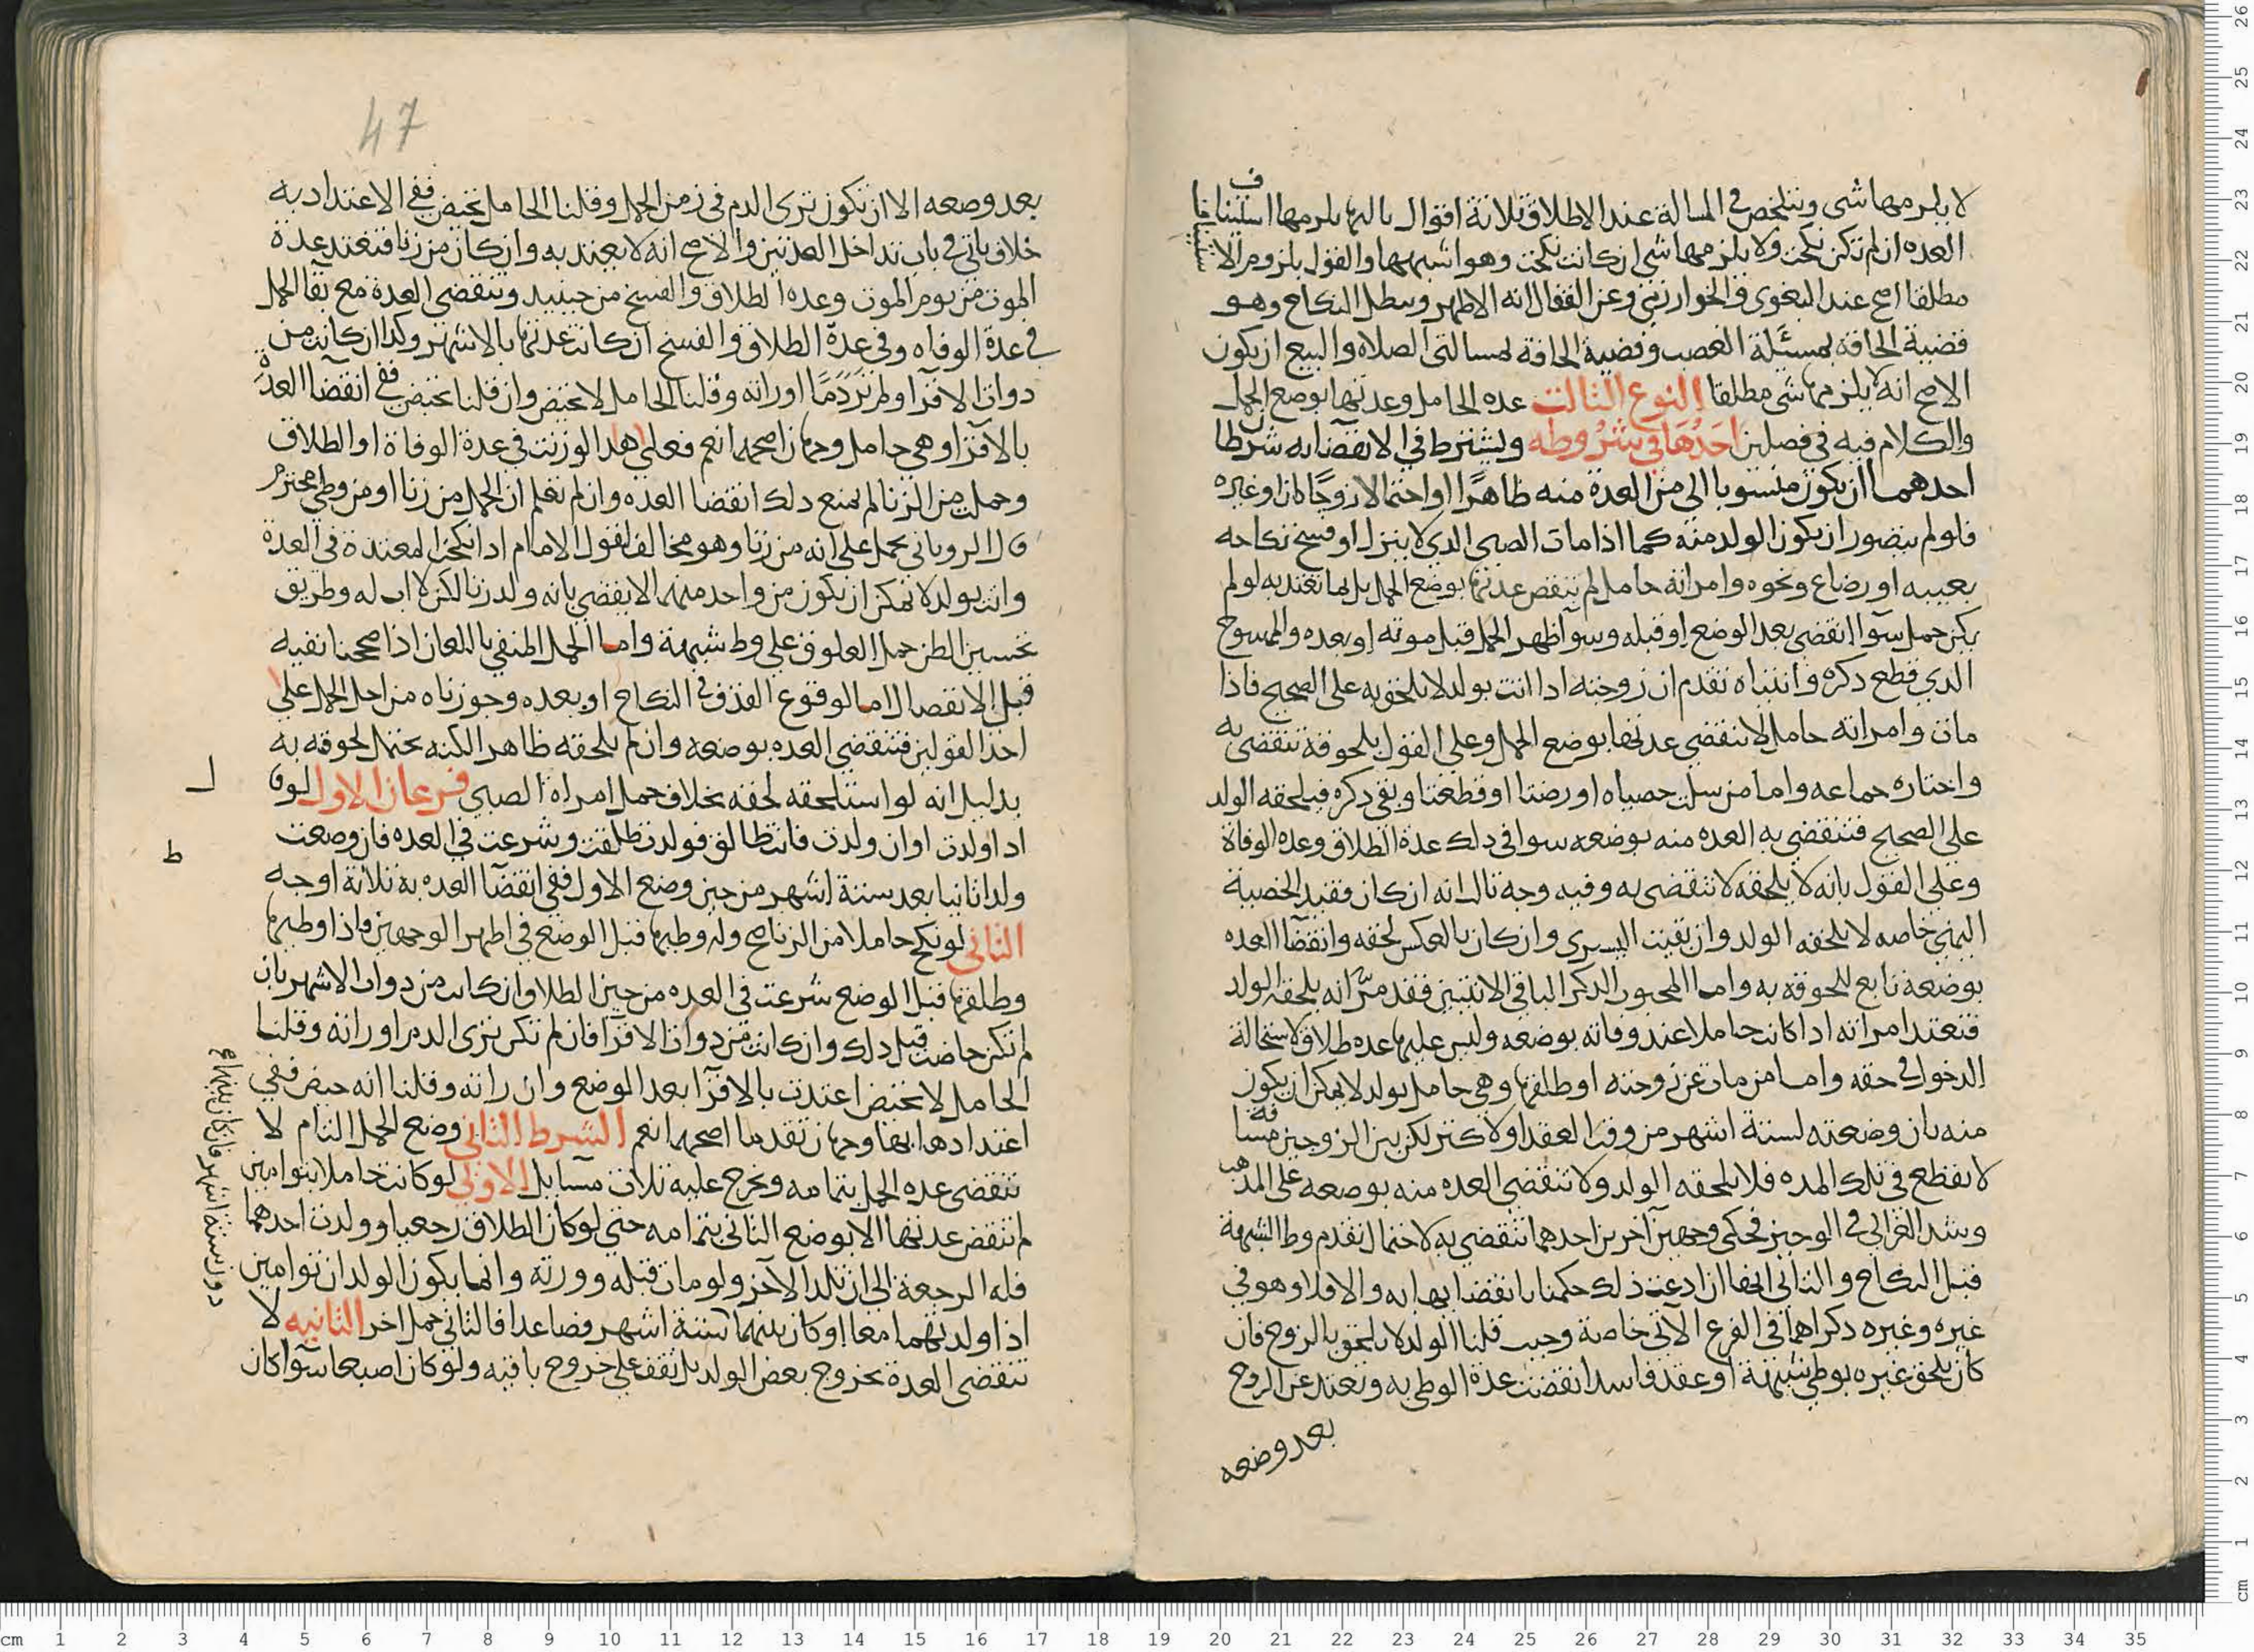 لا يلزمها شي ويتلخص في المسالة عند الاطلاق ثلاثة اقوال ثالثها يلزمها استينافا
العده ان لم تكن نكحت ولا يلزمها شي ان كانت نكحت وهو اشبهها والقول بلزوم الاستيناف
مطلقا اصح عند البغوى والخوارزمي وعن القفال انه الاظهر ويبطل النكاح وهو
قضية الحاقه بمسئلة الغصب وقضية الحاقه بمسالتي الصلاه والبيع ان يكون
الاصح انه لا يلزمها شي مطلقا النوع الثالث عده الحامل وعدتها بوضع الحمل
والكلام فيه في فصلين احدها في شروطه ويشترط في الانقضا به شرطا
احدهما ان يكون منسوبا الى من العدة منه ظاهرا او احتمالا زوجا كان او غيره
فلو لم يتصور ان يكون الولد منه كما اذا مات الصبي الذي لا ينزل او فسخ نكاحه
بعيبه او رضاع ونحوه وامراته حامل لم تنقض عدتها بوضع الحمل بل بما تعتد به لو لم
يكن حمل سوآ انقضى بعد الوضع او قبله وسوآ ظهر الحمل قبل موته او بعده والممسوح
الذي قطع ذكره وانثياه تقدم ان زوجته اذا اتت بولد لا يلحق به على الصحيح فاذا
مات وامراته حامل لا تنقضي عدتها بوضع الحمل وعلى القول بلحوقه تنقضي به
واختاره جماعه واما من سلت خصياه او رضتا او قطعتا وبقى ذكره فيلحقه الولد
على الصحيح فتنقضي به العده منه بوضعه سوا في ذلك عدة الطلاق وعده الوفاة
وعلى القول بانه لا يلحقه لا تنقضي به وفيه وجه ثالث انه ان كان فقيد الخصية
اليمني خاصه لا يلحقه الولد وان بقيت اليسرى وان كان بالعكس لحقه وانقضآ العده
بوضعه تابع للحوقه به واما المجبوب الذكر الباقي الانثيين فقد مر انه يلحقه الولد
فتعتد امراته اذا كانت حاملا عند وفاته بوضعه وليس عليها عده طلاق لاستحالة
الدخول في حقه واما من مات عن زوجته او طلقها وهي حامل بولد لا يمكن ان يكون
منه بان وضعته لستة اشهر من وقت العقد او لاكثر لكن بين الزوجين مسافة
لا تقطع في تلك المده فلا يلحقه الولد ولا تنقضي العده منه بوضعه على المذهب
وشذ الغزالي في الوجيز فحكى وجهين آخرين احدهما تنقضي به لاحتمال تقدم وطا الشبهة
قبل النكاح والثاني انها ان ادعت ذلك حكمنا بانقضايها به والا فلا وهو في
غيره وغيره ذكراهما في الفرع الآتي خاصة وحيث قلنا الولد لا يلحق بالزوج فان
كان يلحق غيره بوطي شبهة او عقد فاسد انقضت عدة الوطي به وتعتد عن الزوج
بعد وضعه
47
بعد وضعه الا ان تكون ترى الدم في زمن الحمل وقلنا الحامل تحيض ففي الاعتداد به
خلاف ياتي في باب تداخل العدتين والاصح انه لا يعتد به وان كان من زنا فتعتد عدة
الموت من يوم الموت وعده الطلاق والفسخ من حينيد وتنقضى العدة مع بقآ الحمل
في عدة الوفاه وفي عدة الطلاق والفسخ ان كانت عدتها بالاشهر وكذا ان كانت من
دوات الاقرآ ولم تر دما او راته وقلنا الحامل لا تحيض وان قلنا تحيض ففي انقضآ العدة
بالاقرآ وهي حامل وجهان اصحهما نعم فعلى هذا لو زنت في عدة الوفاة او الطلاق
وحملت من الزنا لم يمنع ذلك انقضا العده وان لم نعلم ان الحمل من زنا او من وطي محترم
قال الروياني يحمل على انه من زنا وهو مخالف لقول الامام اذا نكحت المعتدة في العدة
واتت بولد لا يمكن ان يكون من واحد منهما لا يقضي بانه ولد زنا لكن لا اب له وطريق
تحسين الظن حمل العلوق على وط شبهة واما الحمل المنفي باللعان اذا صححنا نفيه
قبل الانفصال اما لوقوع القذف في النكاح او بعده وجوزناه من اجل الحمل على
احد القولين فتنقضي العده بوضعه وان لم يلحقه ظاهرا لكنه يحتمل لحوقه به
بدليل انه لو استلحقه لحقه بخلاف حمل امراة الصبي فرعان الاول لو قال
اذا ولدت او ان ولدت فانت طالق فولدت طلقت وشرعت في العده فان وضعت
ولدا ثانيا بعد ستة اشهر من حين وضع الاول ففي انقضآ العده به ثلاثة اوجه
الثاني لو نكح حاملا من الزنا صح وله وطيها قبل الوضع في اظهر الوجهين فاذا وطيها
وطلقها قبل الوضع شرعت في العده من حين الطلاق ان كانت من دوات الاشهر بان
لم تكن حاضت قبل ذلك وان كانت من دوات الاقرآ فان لم تكن ترى الدم او راته وقلنا
الحامل لا تحيض اعتدت بالاقرآ بعد الوضع وان راته وقلنا انه حيض ففي
اعتدادها بها وجهان تقدما اصحهما نعم الشرط الثاني وضع الحمل التام لا
تنقضي عده الحمل بتمامه ويخرج عليه ثلاث مسايل الاولي لو كانت حاملا بتوامين
لم تنقض عدتها الا بوضع الثاني بتمامه حتى لو كان الطلاق رجعيا وولدت احدهما
فله الرجعة الى ان تلد الآخر ولو مات قبله وورثه وانما يكون الولدان توامين
اذا ولدتهما معا او كان بينهما ستة اشهر فصاعدا فالثاني حمل اخر الثانيه لا
تنقضي العدة بخروج بعض الولد بل تقف على خروج باقيه ولو كان اصبعا سوآ كان
دون ستة اشهر فان كان بينهما